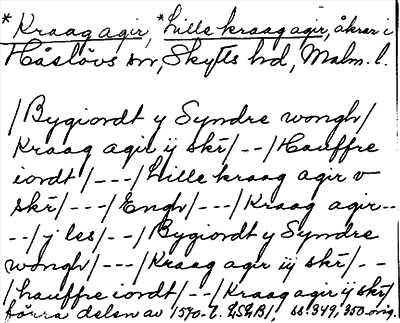 *Kraag agir, *Lille kraag agir, åkrar i
Håslövs sn, Skytts hd, Malm. l.
/Bygiordt y Syndre wongh/
Kraag agir ij skr/--/Hauffre
iordt/---/Lille kraag agir v
skr/---/Engh/---/Kraag agir--
--/j les/--/Bygiordt y Syndre
wongh/---/Kraag agir iij skr/--
/hauffre iordt/--/Kraag agir ij skr/
förra delen av 1570-t. LSLB1, ss. 349, 350 orig.